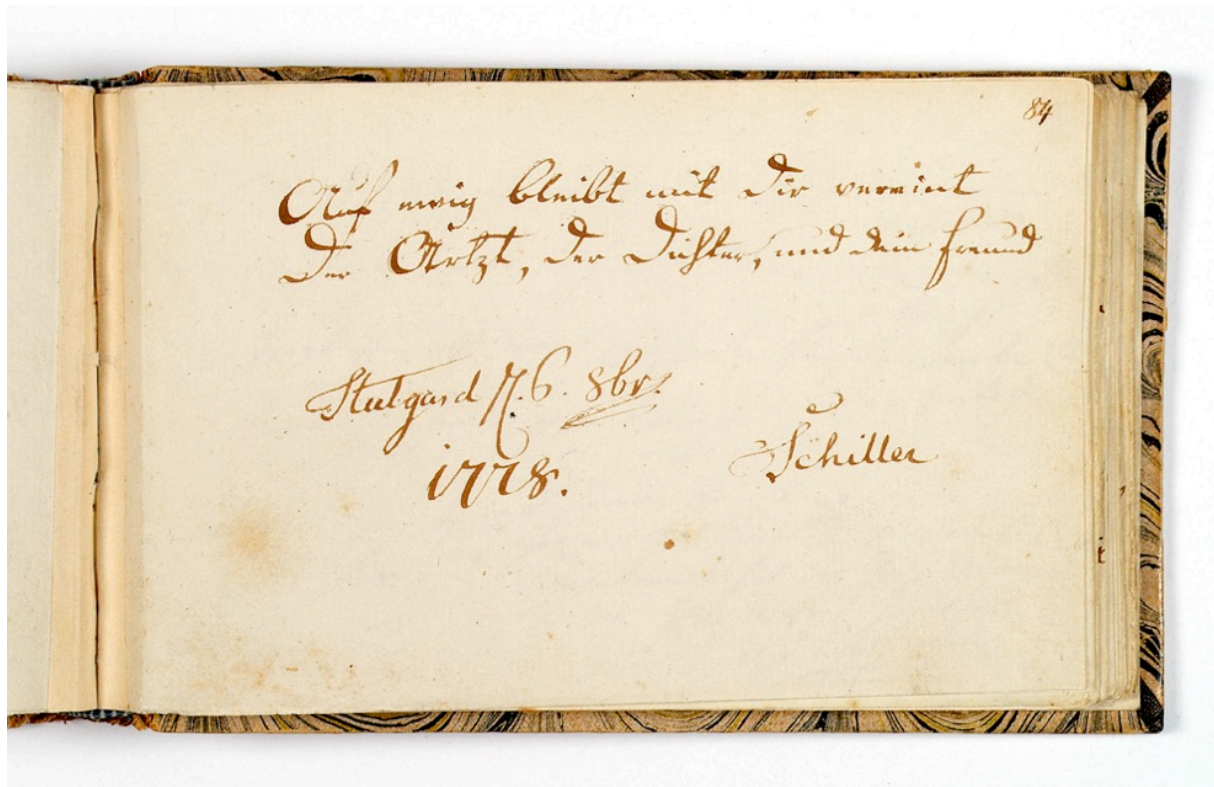 84
Auf ewig bleibt mit Dir vereint
Der Artzt, der Dichter, und dein Freund
Stutgard d. 6. 8br.
1778.
Schiller